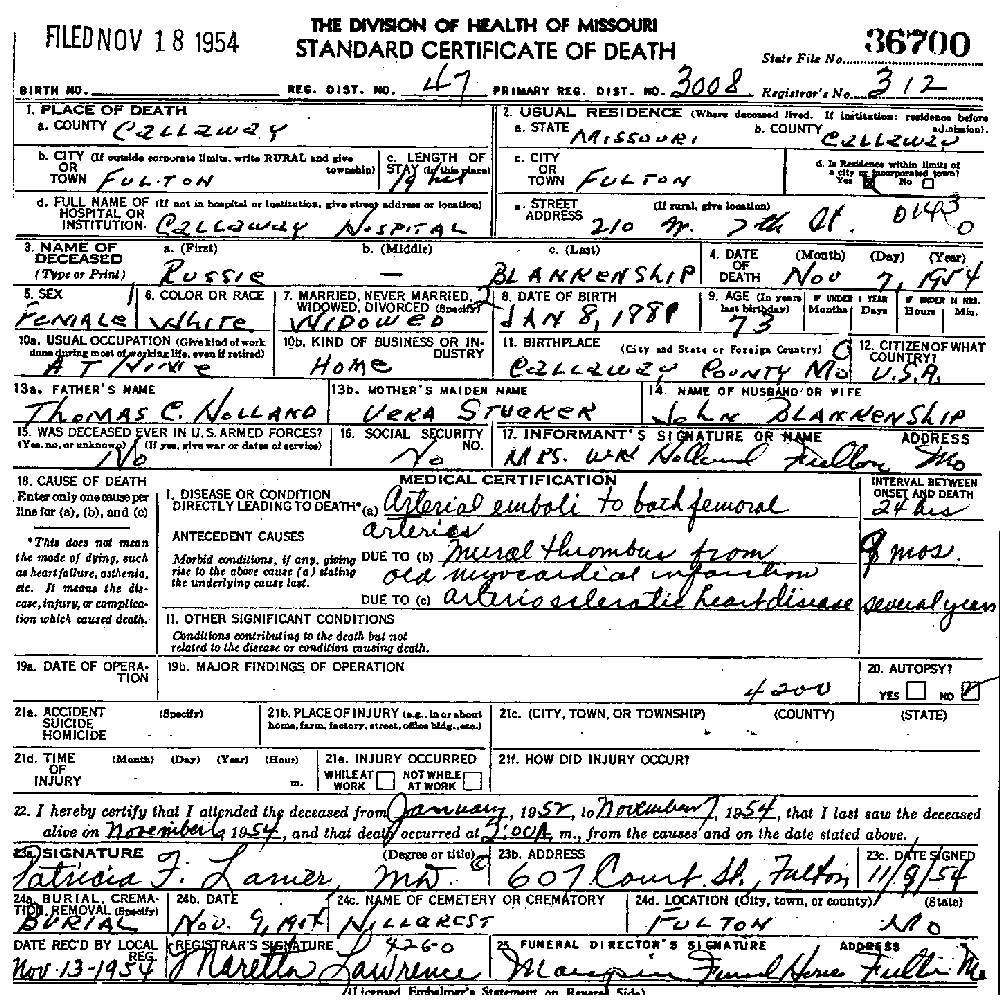 FILED NOV 18 1954
THE DIVISION OF HEALTH OF MISSOURI
STANDARD CERTIFICATE OF DEATH
State File No. 36700
BIRTH NO. REG. DIST. NO. 47 PRIMARY REG. DIST. NO. 3008 Registrar's No. 312
1. PLACE OF DEATH
a. COUNTY CALLAWAY
2. USUAL RESIDENCE (Where deceased lived. If institution: residence before admission).
a. STATE MISSOURI b. COUNTY CALLAWAY
b. CITY (If outside corporate limits, write RURAL and give township) OR TOWN FULTON
c. LENGTH OF STAY (in this place) 19 hrs
c. CITY OR TOWN FULTON
d. Is Residence within limits of a city or incorporated town? Yes No
d. FULL NAME OF HOSPITAL OR INSTITUTION (If not in hospital or institution, give street address or location) CALLAWAY HOSPITAL
e. STREET ADDRESS (If rural, give location) 210 W. 7th St. 0143 0
3. NAME OF DECEASED (Type or Print)
a. (First) RUSSIE b. (Middle) — c. (Last) BLANKENSHIP
4. DATE OF DEATH (Month) (Day) (Year) NOV 7, 1954
5. SEX FEMALE
6. COLOR OR RACE WHITE
7. MARRIED, NEVER MARRIED, WIDOWED, DIVORCED (Specify) WIDOWED 2
8. DATE OF BIRTH JAN 8, 1881
9. AGE (In years last birthday) 73 IF UNDER 1 YEAR Months Days IF UNDER 24 HRS. Hours Min.
10a. USUAL OCCUPATION (Give kind of work done during most of working life, even if retired) AT HOME
10b. KIND OF BUSINESS OR INDUSTRY HOME
11. BIRTHPLACE (City and State or Foreign Country) CALLAWAY COUNTY MO
12. CITIZEN OF WHAT COUNTRY? U.S.A.
13a. FATHER'S NAME THOMAS C. HOLLAND
13b. MOTHER'S MAIDEN NAME VERA STUCKER
14. NAME OF HUSBAND OR WIFE JOHN BLANKENSHIP
15. WAS DECEASED EVER IN U.S. ARMED FORCES? (Yes, no, or unknown) (If yes, give war or dates of service) NO
16. SOCIAL SECURITY NO. NO
17. INFORMANT'S SIGNATURE OR NAME ADDRESS
MRS. WM Holland Fulton Mo
18. CAUSE OF DEATH
Enter only one cause per line for (a), (b), and (c)
*This does not mean the mode of dying, such as heart failure, asthenia, etc. It means the disease, injury, or complication which caused death.
MEDICAL CERTIFICATION
INTERVAL BETWEEN ONSET AND DEATH
I. DISEASE OR CONDITION DIRECTLY LEADING TO DEATH* (a) Arterial emboli to both femoral arteries 24 hrs
ANTECEDENT CAUSES
Morbid conditions, if any, giving rise to the above cause (a) stating the underlying cause last.
DUE TO (b) Mural thrombus from old myocardial infarction 9 mos.
DUE TO (c) arteriosclerotic heart disease several years
II. OTHER SIGNIFICANT CONDITIONS
Conditions contributing to the death but not related to the disease or condition causing death.
19a. DATE OF OPERATION
19b. MAJOR FINDINGS OF OPERATION
4200
20. AUTOPSY? YES NO
21a. ACCIDENT SUICIDE HOMICIDE (Specify)
21b. PLACE OF INJURY (e.g., in or about home, farm, factory, street, office bldg., etc.)
21c. (CITY, TOWN, OR TOWNSHIP) (COUNTY) (STATE)
21d. TIME OF INJURY (Month) (Day) (Year) (Hour) m.
21e. INJURY OCCURRED WHILE AT WORK NOT WHILE AT WORK
21f. HOW DID INJURY OCCUR?
22. I hereby certify that I attended the deceased from January, 1952, to November 7, 1954, that I last saw the deceased
alive on November 6, 1954, and that death occurred at 2:00A m., from the causes and on the date stated above.
23a. SIGNATURE (Degree or title) Patricia F. Lanier, MD.
23b. ADDRESS 607 Court St., Fulton
23c. DATE SIGNED 11/9/54
24a. BURIAL, CREMATION, REMOVAL (Specify) BURIAL
24b. DATE NOV. 9, 1954
24c. NAME OF CEMETERY OR CREMATORY HILLCREST
24d. LOCATION (City, town, or county) (State) FULTON MO
DATE REC'D BY LOCAL REG. Nov-13-1954
REGISTRAR'S SIGNATURE 4260 Maretta Lawrence
25. FUNERAL DIRECTOR'S SIGNATURE ADDRESS
Maupin Funeral Home Fulton Mo
(Licensed Embalmer's Statement on Reverse Side)